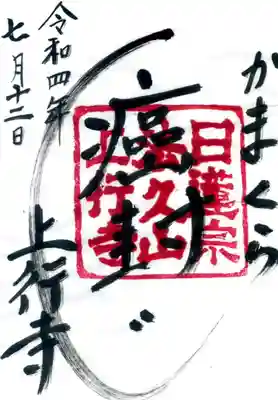 かまくら
癌封じ
日蓮宗
法久山
上行寺
上行寺
令和四年
七月十二日